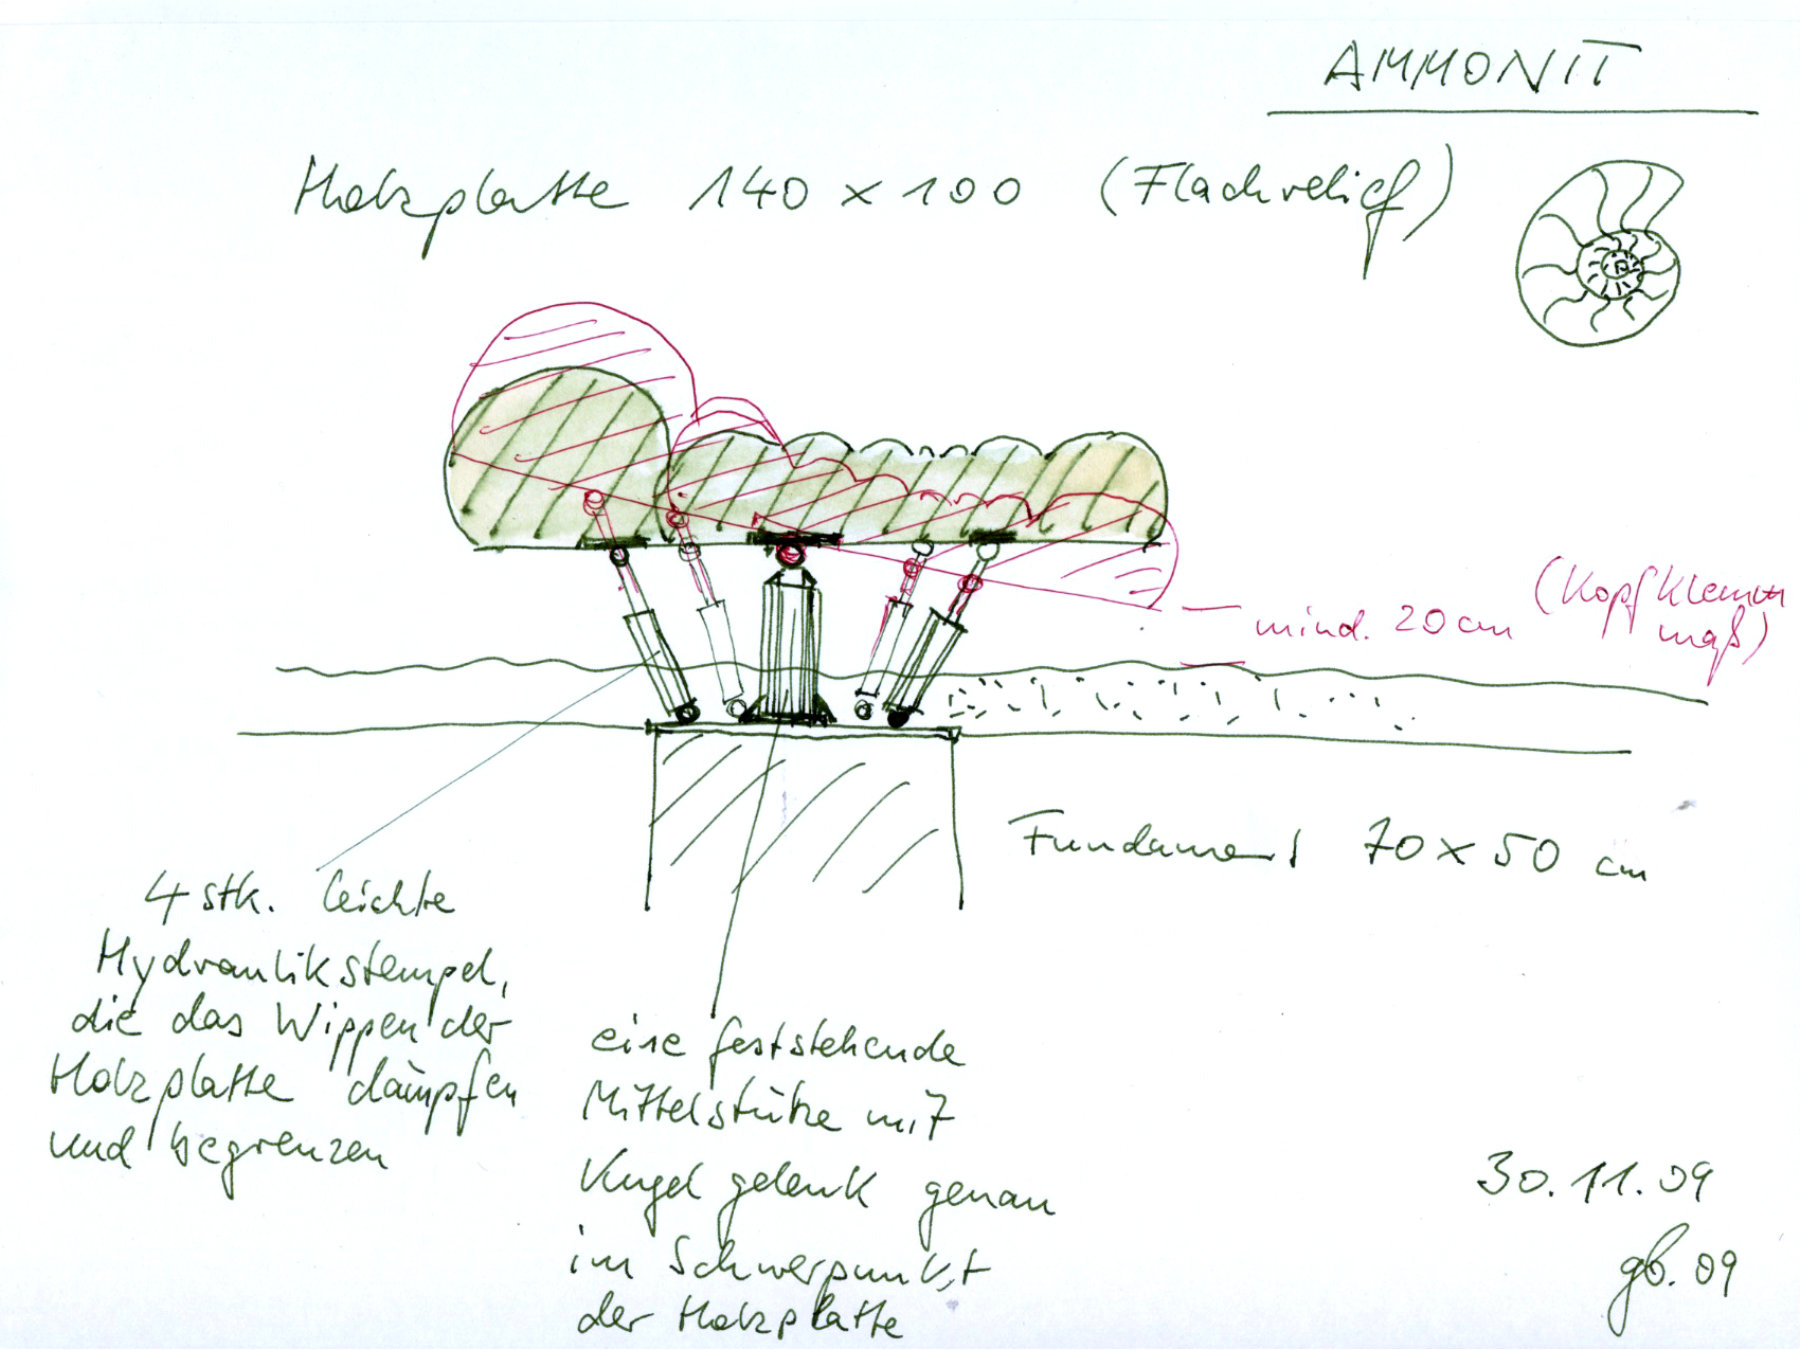 AMMONIT
Holzplatte 140 x 100 (Flachrelief)
mind. 20 cm
(Kopfklemm
maß)
Fundament 70 x 50 cm
4 stk. leichte
Hydraulikstempel,
die das Wippen der
Holzplatte dämpfen
und begrenzen
eine feststehende
Mittelstütze mit
Kugelgelenk genau
im Schwerpunkt
der Holzplatte
30.11.09
gb. 09